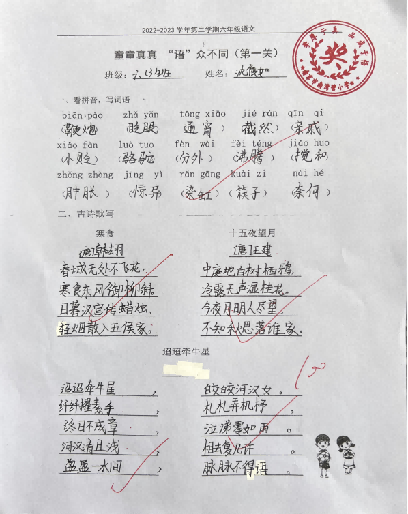 2022-2023学年第二学期六年级语文
童童真真 “语”众不同（第一关）
班级： 姓名：
一、看拼音，写词语
biān pào zhǎ yǎn tōng xiāo jié rán qīn qi
（鞭炮）（眨眼）（通宵）（截然）（亲戚）
xiǎo fàn luò tuo fèn wài fèi téng jiǎo huo
（小贩）（骆驼）（分外）（沸腾）（搅和）
zhǒng zhàng jīng yà rǎn gāng kuài zi nài hé
（肿胀）（惊异）（染缸）（筷子）（奈何）
二、古诗默写
寒食 十五夜望月
唐 韩翃 唐 王建
春城无处不飞花， 中庭地白树栖鸦，
寒食东风御柳斜。 冷露无声湿桂花。
日暮汉宫传蜡烛， 今夜月明人尽望，
轻烟散入五侯家。 不知秋思落谁家。
迢迢牵牛星
迢迢牵牛星， 皎皎河汉女，
纤纤擢素手， 札札弄机杼，
终日不成章， 泣涕零如雨。
河汉清且浅， 相去复几许，
盈盈一水间， 脉脉不得语。
奖